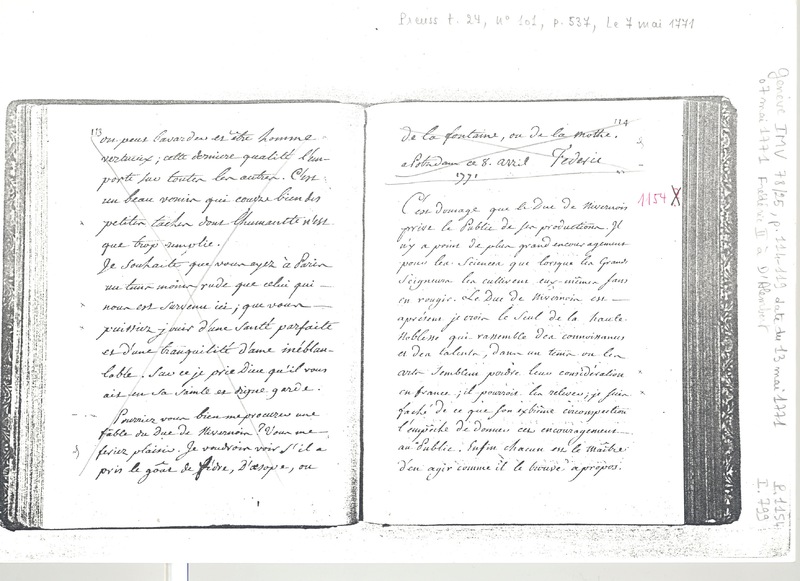 Preuss t. 24, n° 101, p. 537, le 7 mai 1771
113
on peus bavarder es être homme
vertueux; cette derniere qualité l'em-
porte sur toutes les autres. C'est
un beau vernis qui couvre bien des
petites taches dont l'humanité n'est
que trop remplie.
Je souhaite que vous ayez à Paris
un tems moins rude que celui qui
nous est survenu ici; que vous
puissiez jouir d'une santé parfaite
et d'une tranquilité d'ame inébran-
lable. Sur ce je prie Dieu qu'il vous
ait en sa sainte et digne garde.
Pourriez vous bien me procurer une
fable du Duc de Nivernois? Vous me
feriez plaisir. Je voudrois voir s'il a
pris le goût de Fédre, D'Æsope, ou
114
de la fontaine, ou de la mothe.
a Potzdam ce 8. avril Féderic
1771
1154 X
C'est domage que le Duc de Nivernois
prive le Public de ses productions. Il
n'y a point de plus grand encouragement
pour les Sciences que lorsque les Grands
Seigneurs les cultivent eux-mêmes sans
en rougir. Le Duc de Nivernois est
apresent je crois le seul de la haute
Noblesse qui rassemble des connoissances
et des talents, dans un tems ou les
arts semblent perdre leur considération
en france; il pourroit les relever; je suis
faché de ce que son extrême circonspection
l'empêche de donner ces encouragemens
au Public. Enfin chacun est le maître
d'en agir comme il le trouve à propos.
Genève IMV 78/25, p. 114-119 date du 13 mai 1771
07 mai 1771 Frédéric II à D'Alembert
P. 1154
I. 799